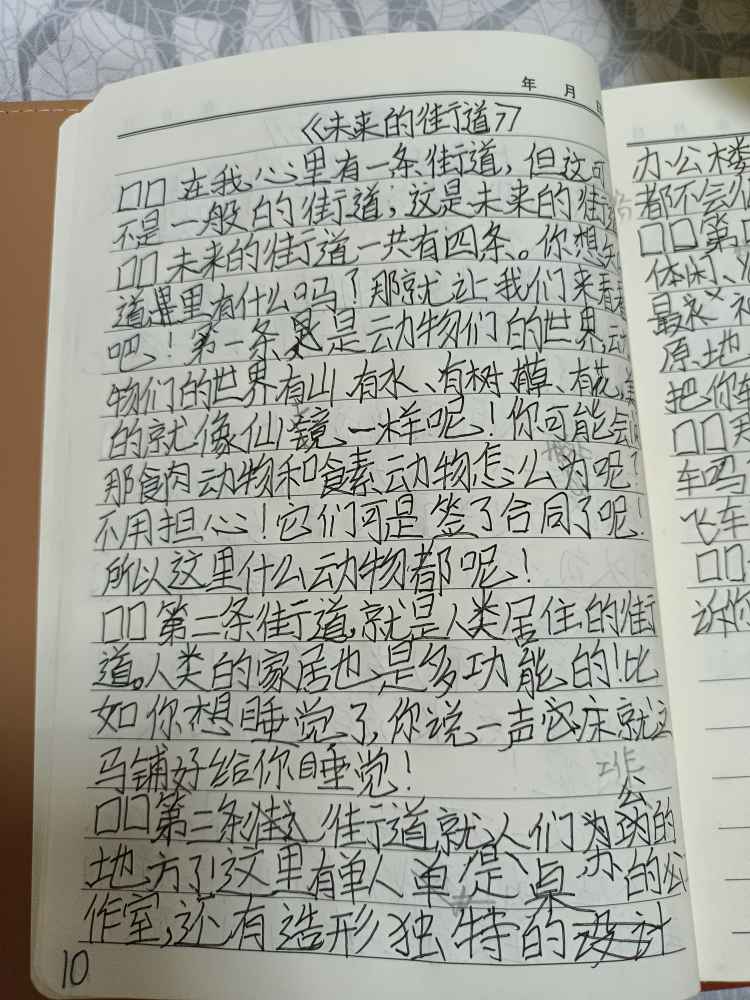 年 月 日
《未来的街道》
□□在我心里有一条街道，但这可
不是一般的街道，这是未来的街道
□□未来的街道一共有四条。你想知
道里有什么吗？那就让我们来看看
吧！第一条是动物们的世界，动
物们的世界有山、有水、有树、有草、有花，
的就像仙镜一样呢！你可能会问
那食肉动物和食素动物怎么为呢？
不用担心！它们可是签了合同了呢！
所以这里什么动物都呢！
□□第二条街道，就是人类居住的街
道。人类的家居也是多功能的！比
如你想睡觉了，你说一声它床就立
马铺好给你睡觉！
工作
□□第三条街道就人们为公的
地方了！这里有单人单桌办的公
作室，还有造形独特的设计
10
办公楼
都不会
□□第四
体闲、
最
原地
把你
□□
车吗？
飞车
□□
诉你